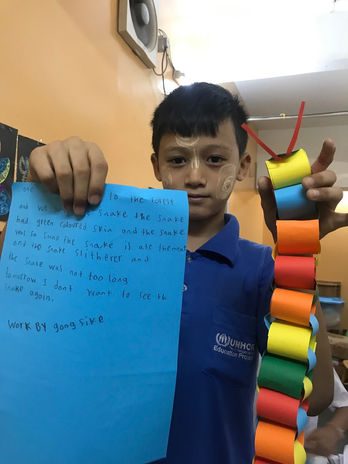 one to the forest
and we snake the snake
had green coloured skin and the snake
was so the snake is the
and the snake slitherer and
the snake was not too long.
tomorrow I dont want to see th
snake again.
WORK BY gong sike
UNHCR
Education